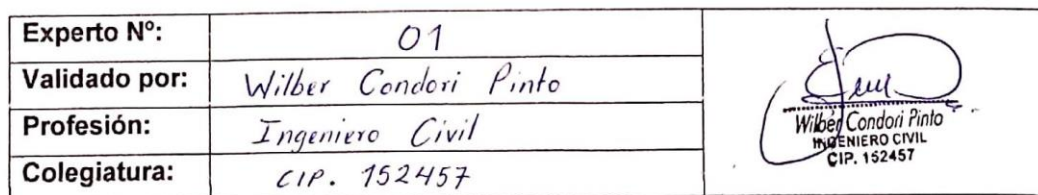 Experto Nº: 01
Validado por: Wilber Condori Pinto
Profesión: Ingeniero Civil
Colegiatura: CIP. 152457
Wilber Condori Pinto
INGENIERO CIVIL
CIP. 152457